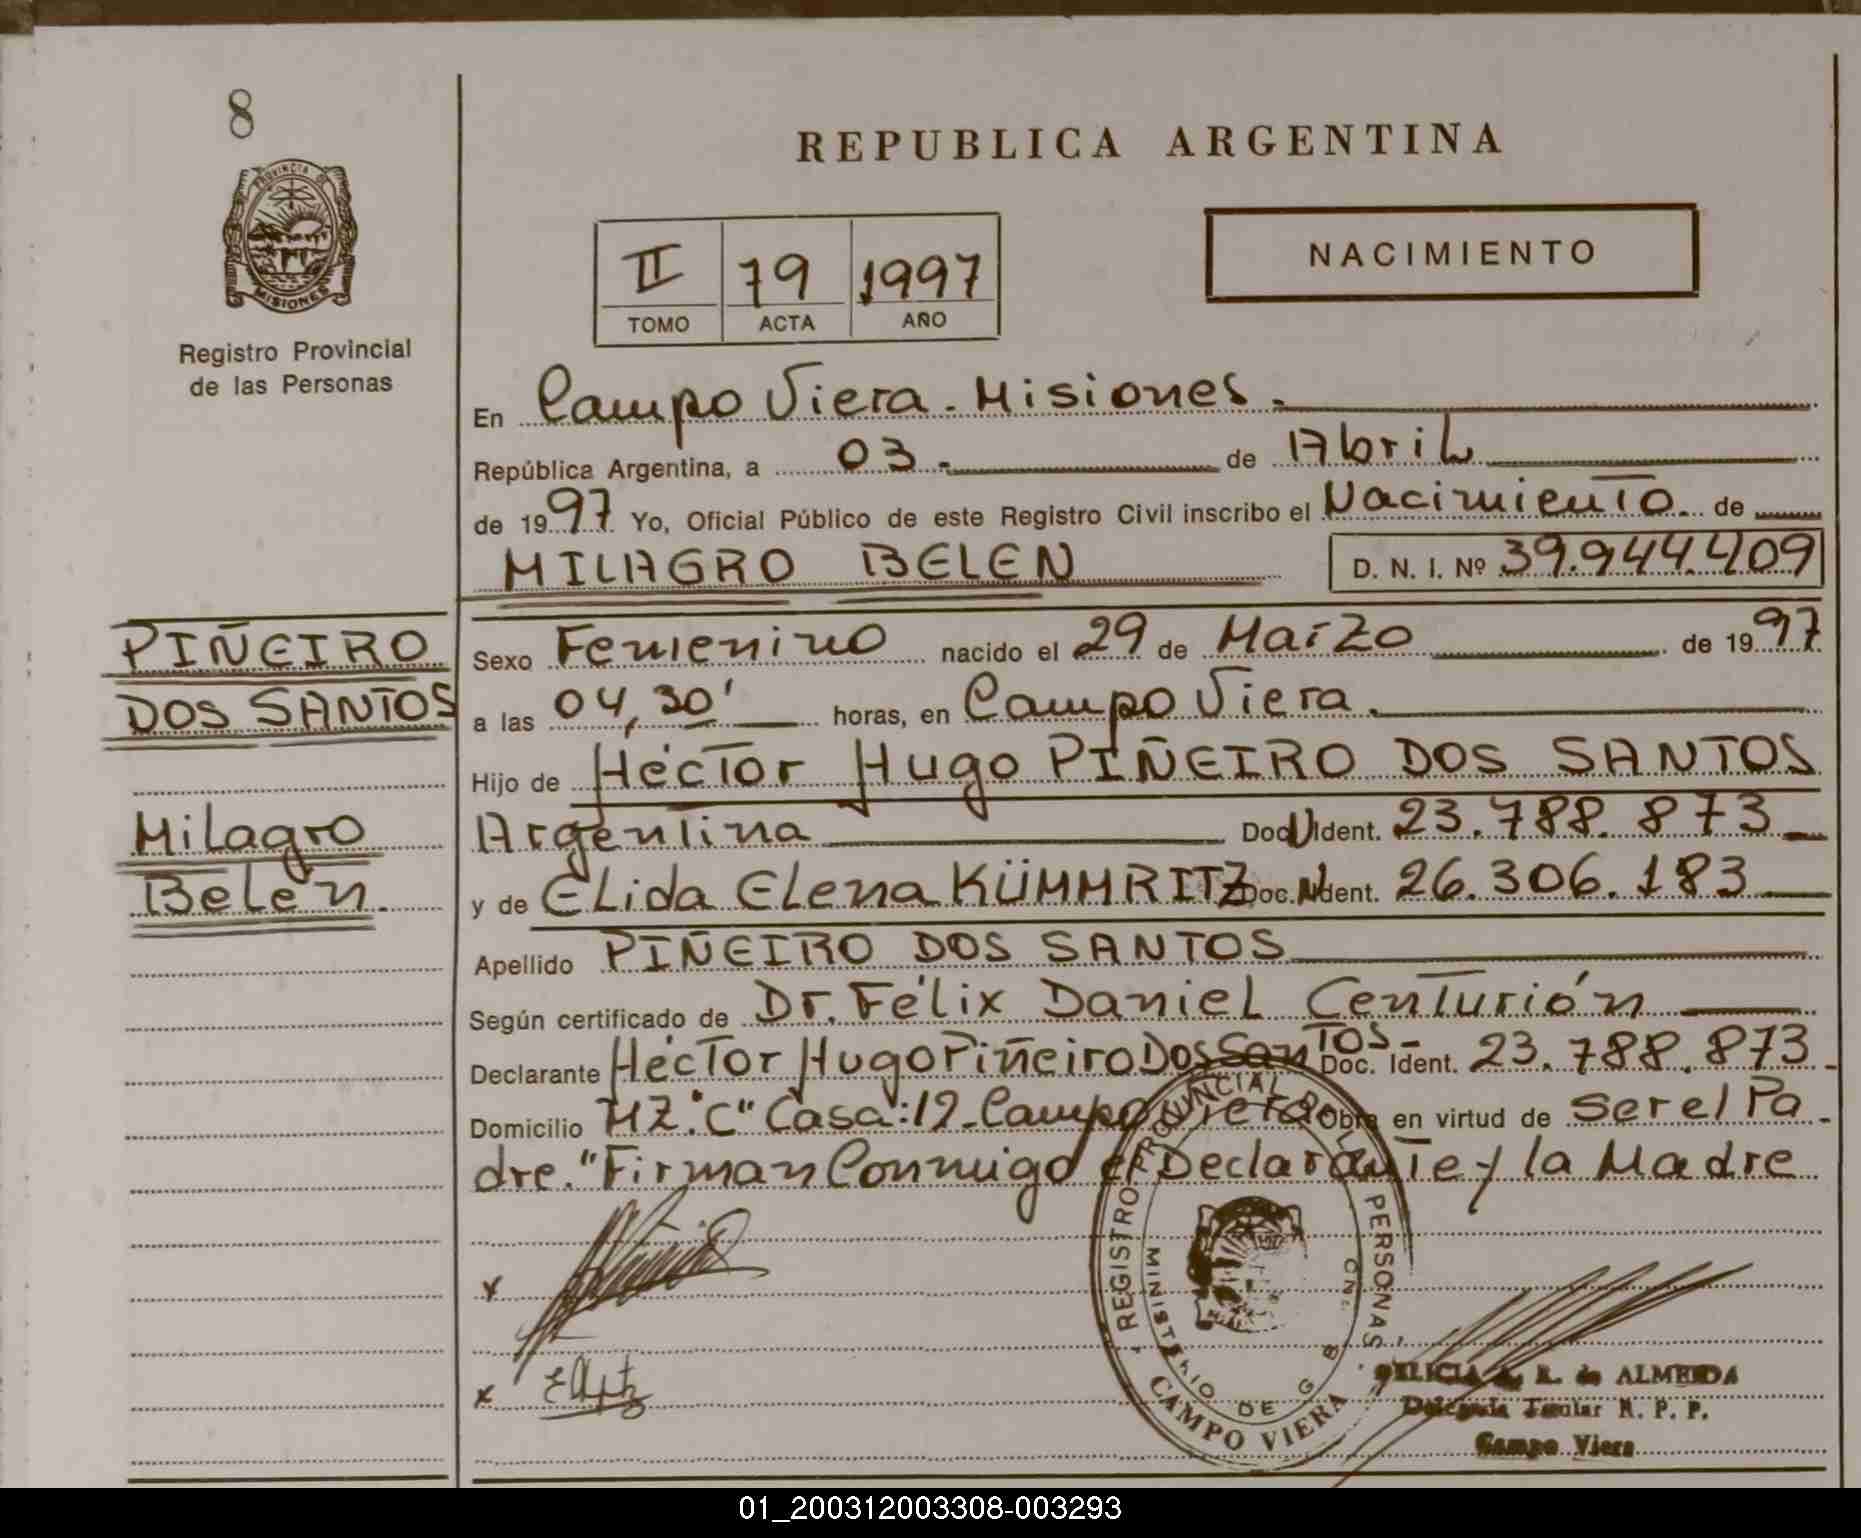 8
PROVINCIA DE
MISIONES
Registro Provincial
de las Personas
REPUBLICA ARGENTINA
II 79 1997
TOMO ACTA AÑO
NACIMIENTO
En Campo Viera. Misiones.
República Argentina, a 03. de Abril
de 1997 Yo, Oficial Público de este Registro Civil inscribo el Nacimiento. de
MILAGRO BELEN D. N. I. Nº 39.944.409
PIÑEIRO
DOS SANTOS
Milagro
Belén.
Sexo Femenino nacido el 29 de Marzo de 1997
a las 04,30' horas, en Campo Viera.
Hijo de Héctor Hugo PIÑEIRO DOS SANTOS
Argentina Doc. Ident. 23.788.873
y de Elida Elena KÜMMRITZ Doc. Ident. 26.306.183
Apellido PIÑEIRO DOS SANTOS
Según certificado de Dr. Félix Daniel Centurión
Declarante Héctor Hugo Piñeiro Dos Santos- Doc. Ident. 23.788.873-
Domicilio MZ."C" Casa:12-Campo Viera Obra en virtud de Ser el Pa-
dre."Firman Conmigo el Declarante y la Madre
x
x
REGISTRO PROVINCIAL DE L PERSONAS
MINISTERIO DE G
CAMPO VIERA
R. de ALMEIDA
Delegada Titular R. P. P.
Campo Viera
01_200312003308-003293